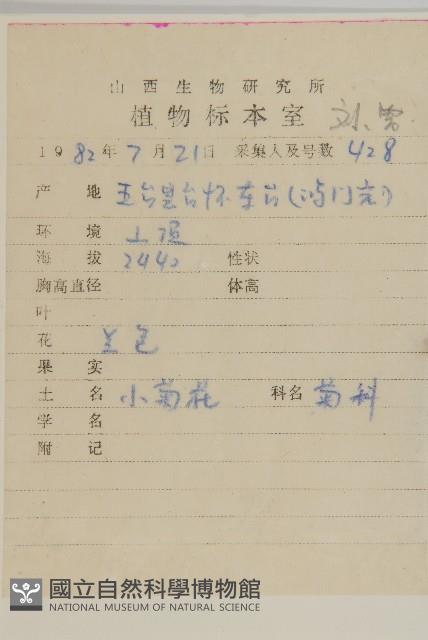 山西生物研究所
植物标本室 刘、
1982年7月21日 采集人及号数 428
产地 五台县台怀东台(鸿门岩)
环境 山顶
海拔 2440 性状
胸高直径 体高
叶
花 兰色
果实
土名 小菊花 科名 菊科
学名
附记
國立自然科學博物館
NATIONAL MUSEUM OF NATURAL SCIENCE